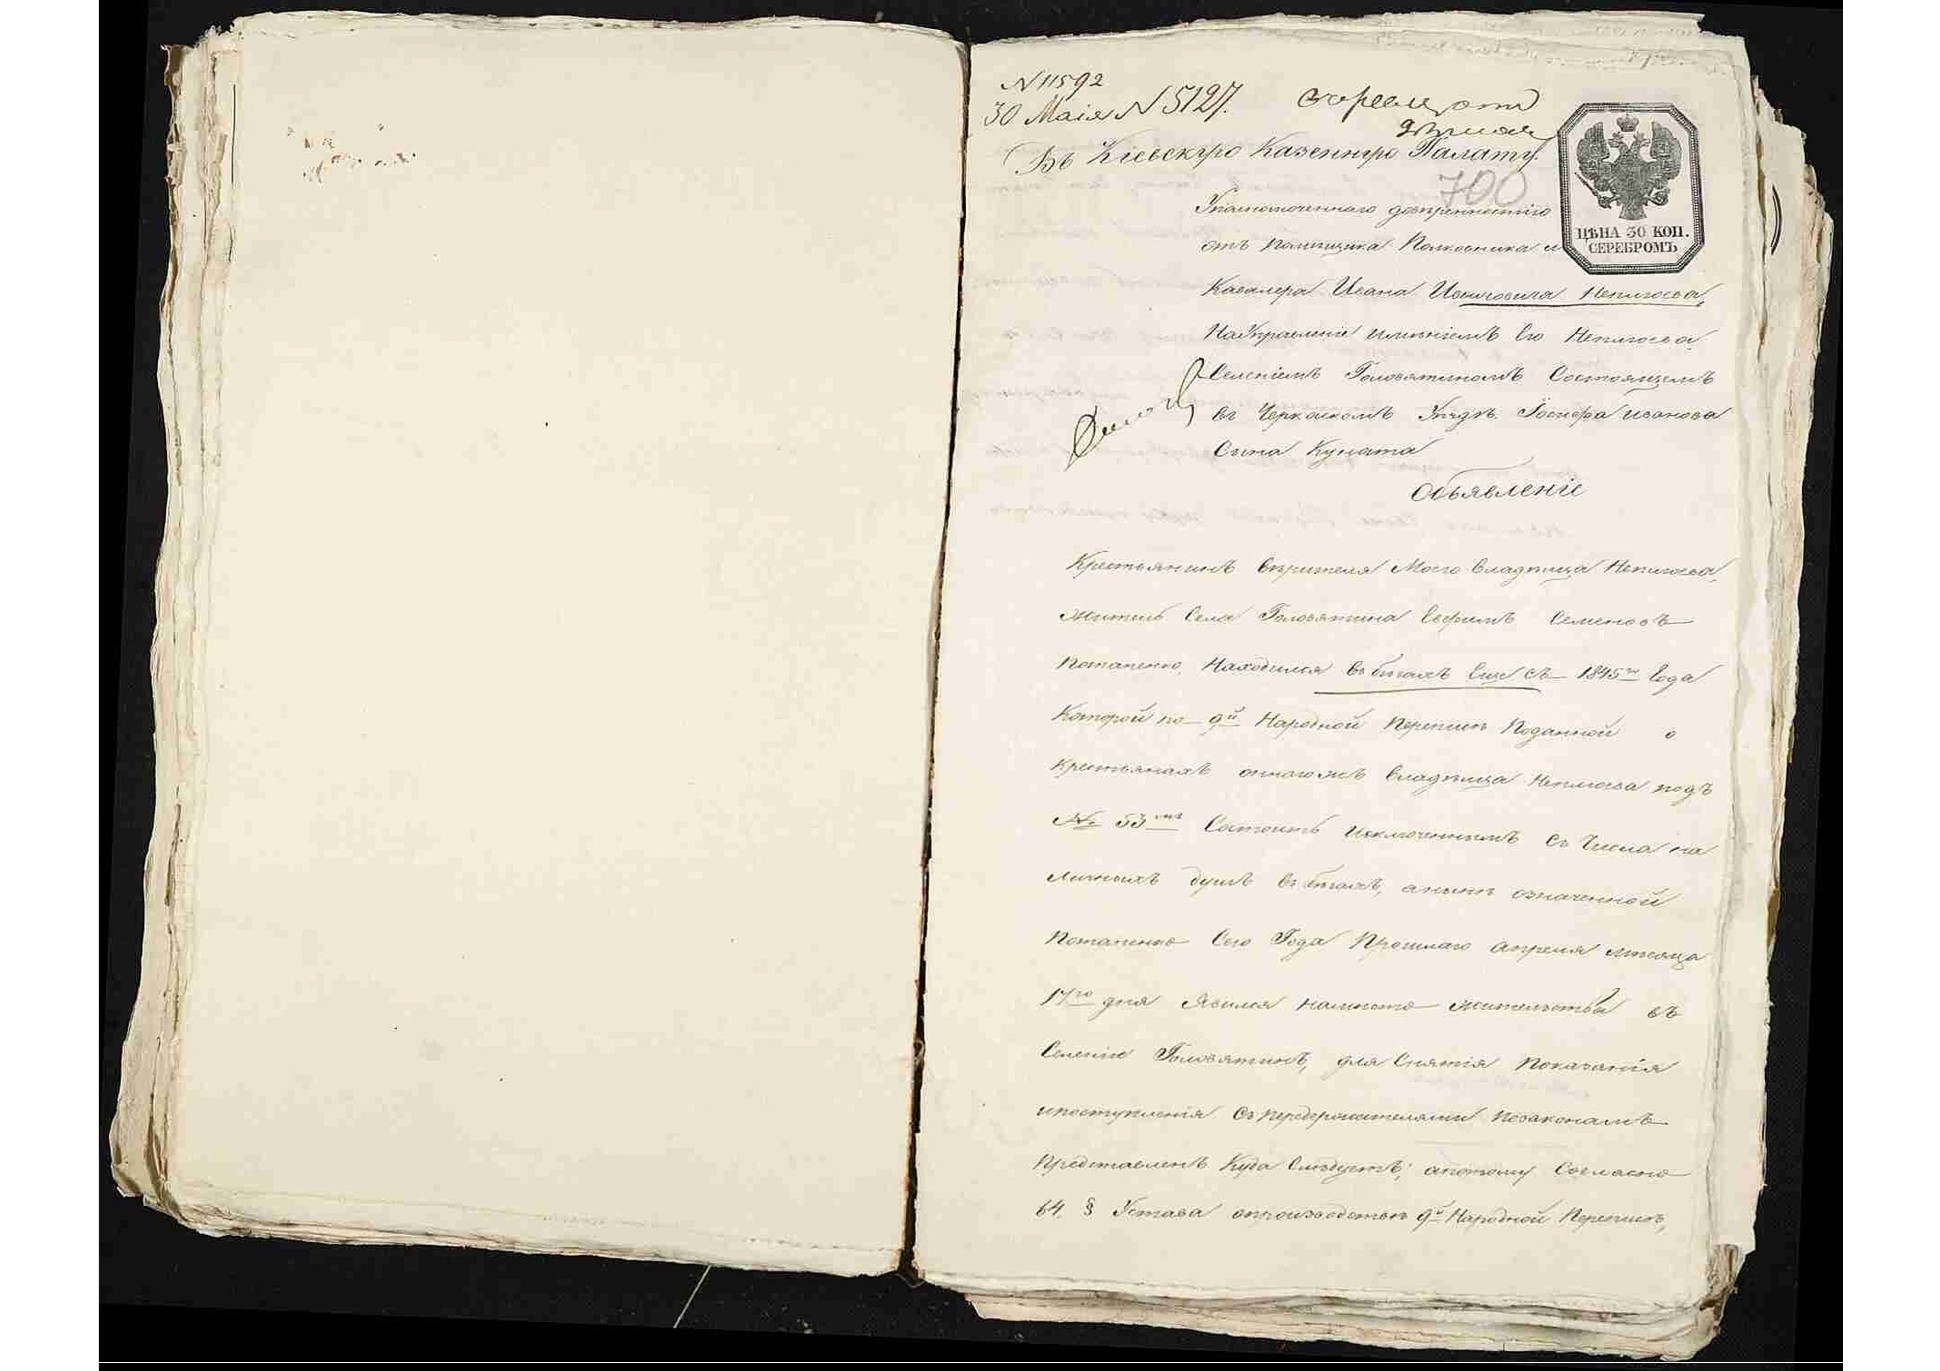 N 11592
30 Маія N 5127.
Въ Кіевскую Казенную Палату.
700
Уполномоченнаго довѣренностію
отъ Помѣщика Полковника и
ЦѢНА 30 КОП.
СЕРЕБРОМЪ
Кавалера Ивана Ивановича Неплюева,
На Управленіе имѣніемъ Его Неплюева
Селеніемъ Головятиномъ Состоящемъ
въ Черкаскомъ Уѣздѣ. Іосифа Иванова
Сына Куната
Объявленіе
Крестьянинъ вѣрителя Моего Владѣльца Неплюева,
житель Села Головятина Ефимъ Семеновъ
Потапенко, Находился въ бѣгахъ Еще съ 1845го Года
Которой по 9й Народной Переписѣ Поданной о
Крестьянахъ онагожъ Владѣльца Неплюева подъ
№ 53мъ Состоитъ исключеннымъ съ Числа на
личныхъ душъ въ бѣгахъ, а нынѣ означенной
Потапенко Сего Года Прошлаго апреля мѣсяца
17го дня Явился на мѣсто жительства въ
Селеніе Головятинъ, для Снятія Показанія
и поступленія Съ передержателями по законамъ
Представленъ Куда Слѣдуетъ; а потому Согласно
64. § Устава о производствѣ 9й Народной Переписѣ,